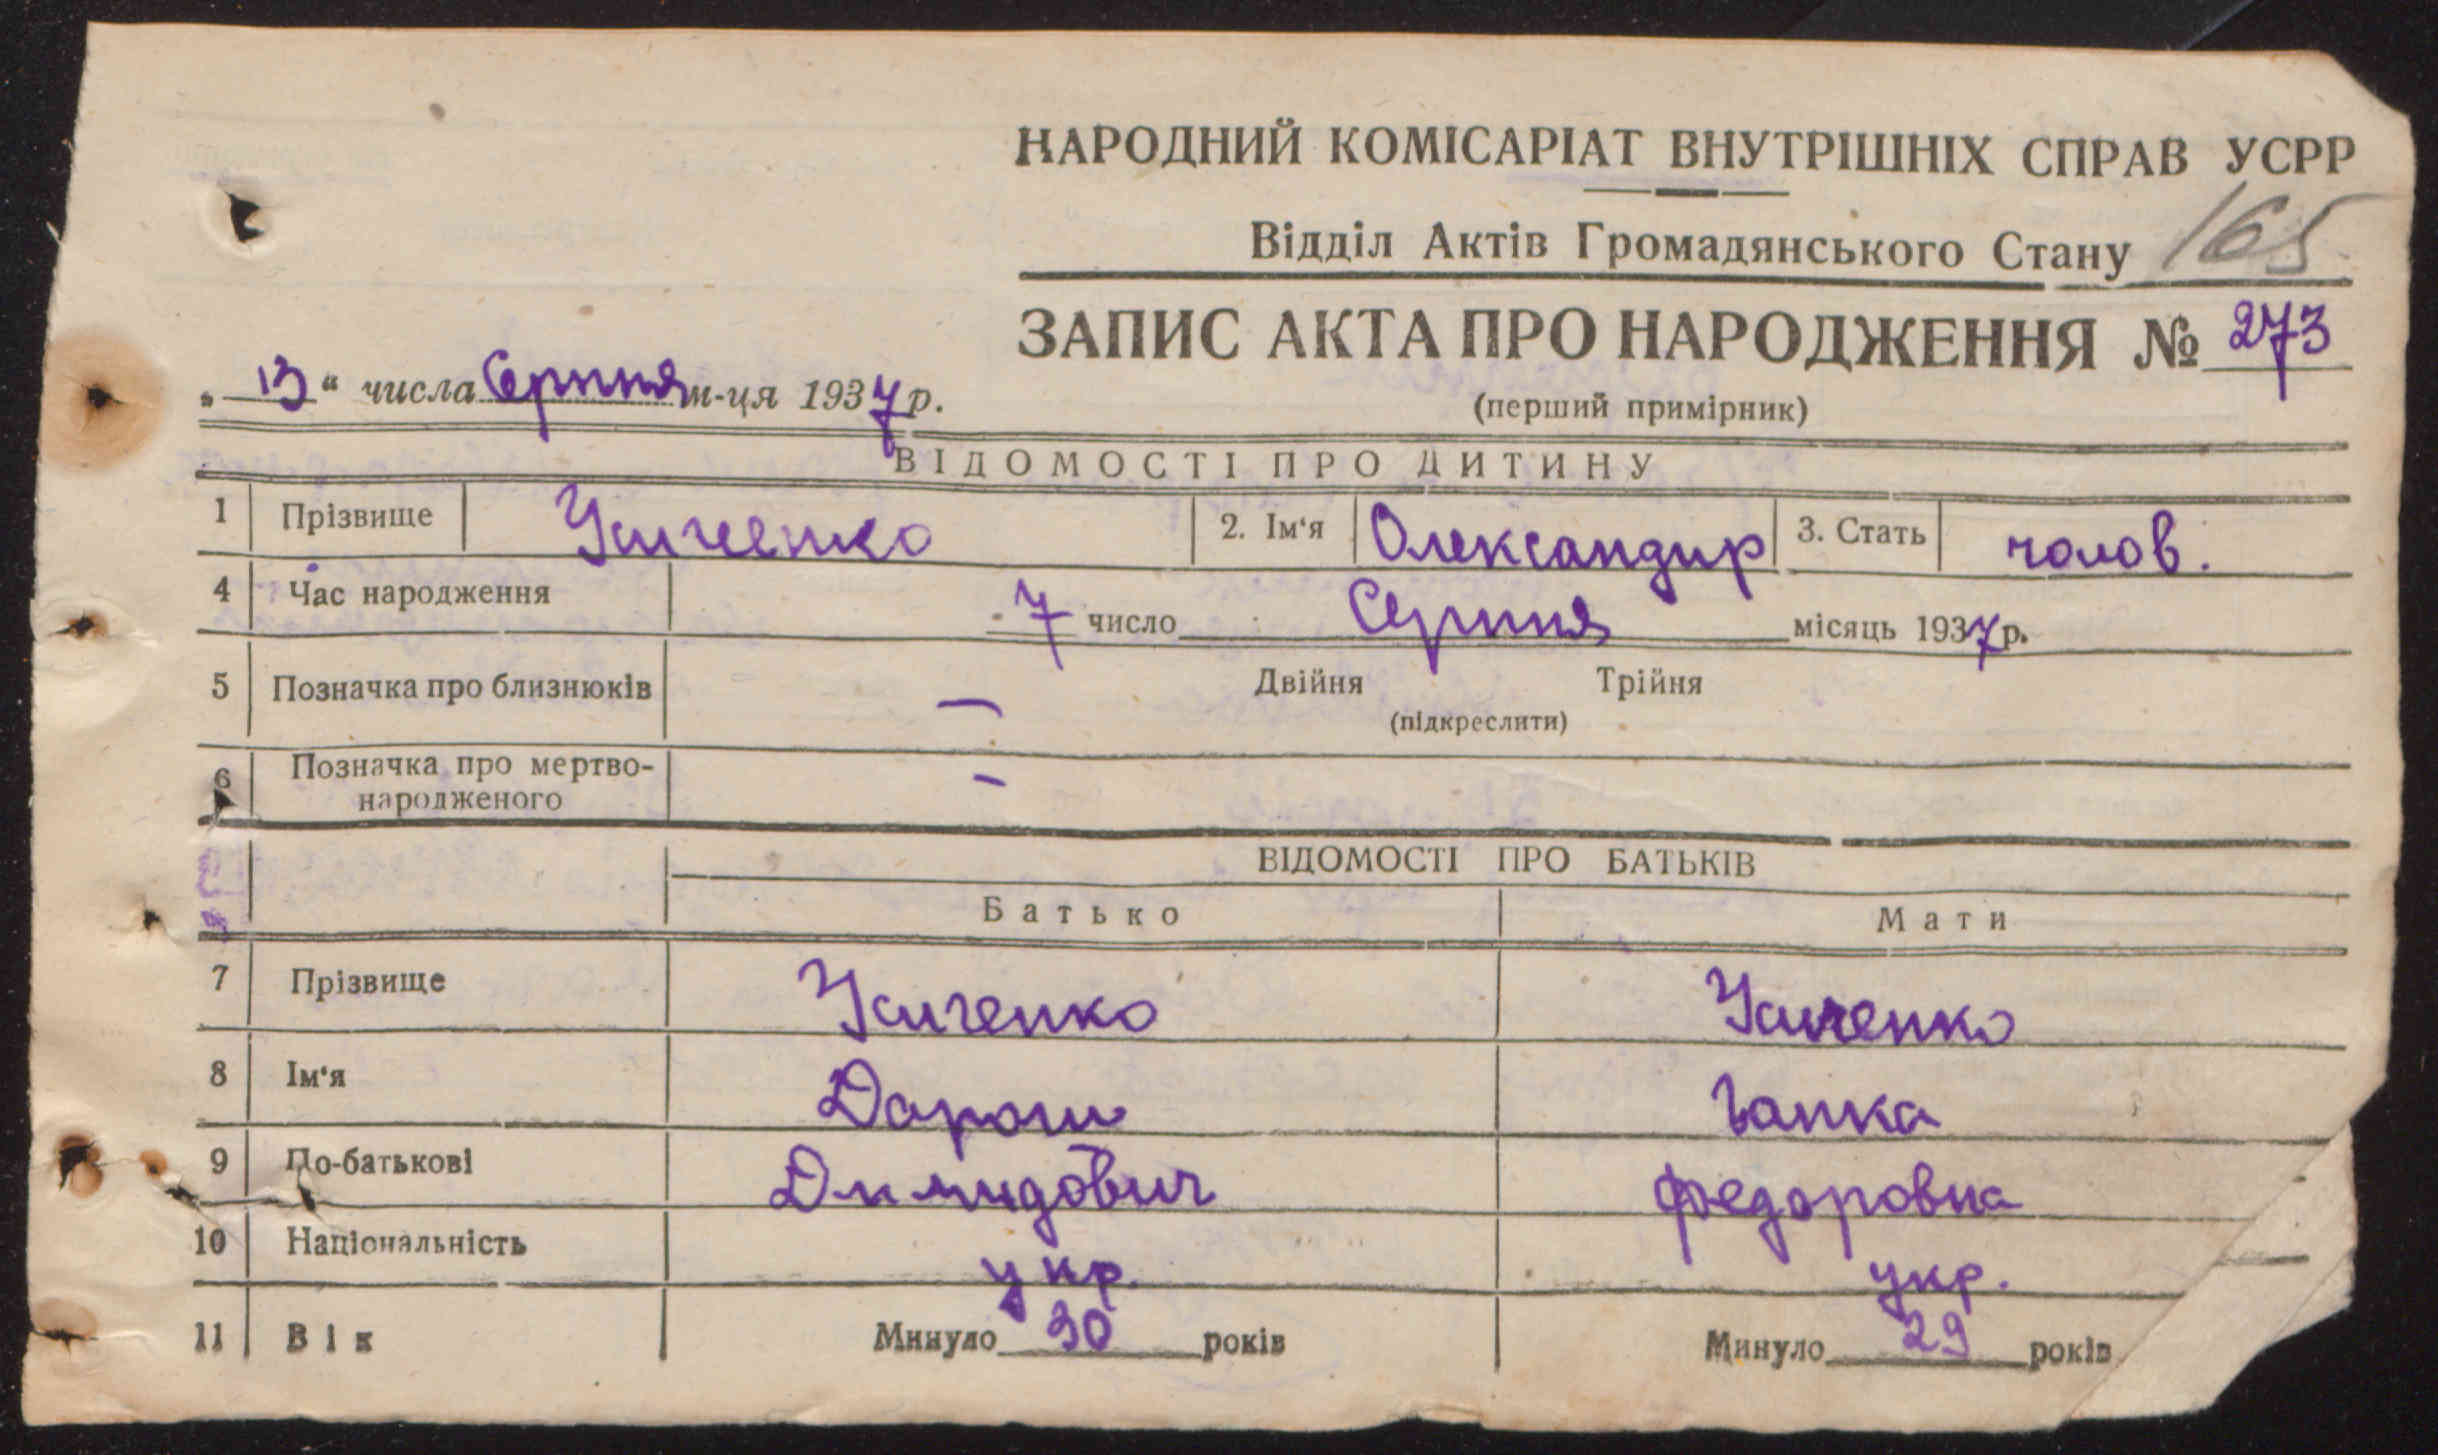 НАРОДНИЙ КОМІСАРІАТ ВНУТРІШНІХ СПРАВ УСРР
Відділ Актів Громадянського Стану 165
ЗАПИС АКТА ПРО НАРОДЖЕННЯ № 273
„ 13 “ числа Серпня м-ця 1937 р.
(перший примірник)
ВІДОМОСТІ ПРО ДИТИНУ
1 Прізвище Усиченко 2. Ім'я Олександир 3. Стать чолов.
4 Час народження 7 число Серпня місяць 1937 р.
5 Позначка про близнюків — Двійня Трійня
(підкреслити)
6 Позначка про мертво- –
народженого
ВІДОМОСТІ ПРО БАТЬКІВ
Батько Мати
7 Прізвище Усиченко Усиченко
8 Ім'я Дорош Ганка
9 По-батькові Димидович Федоровна
10 Національність укр. укр.
11 Вік Минуло 30 років Минуло 29 років